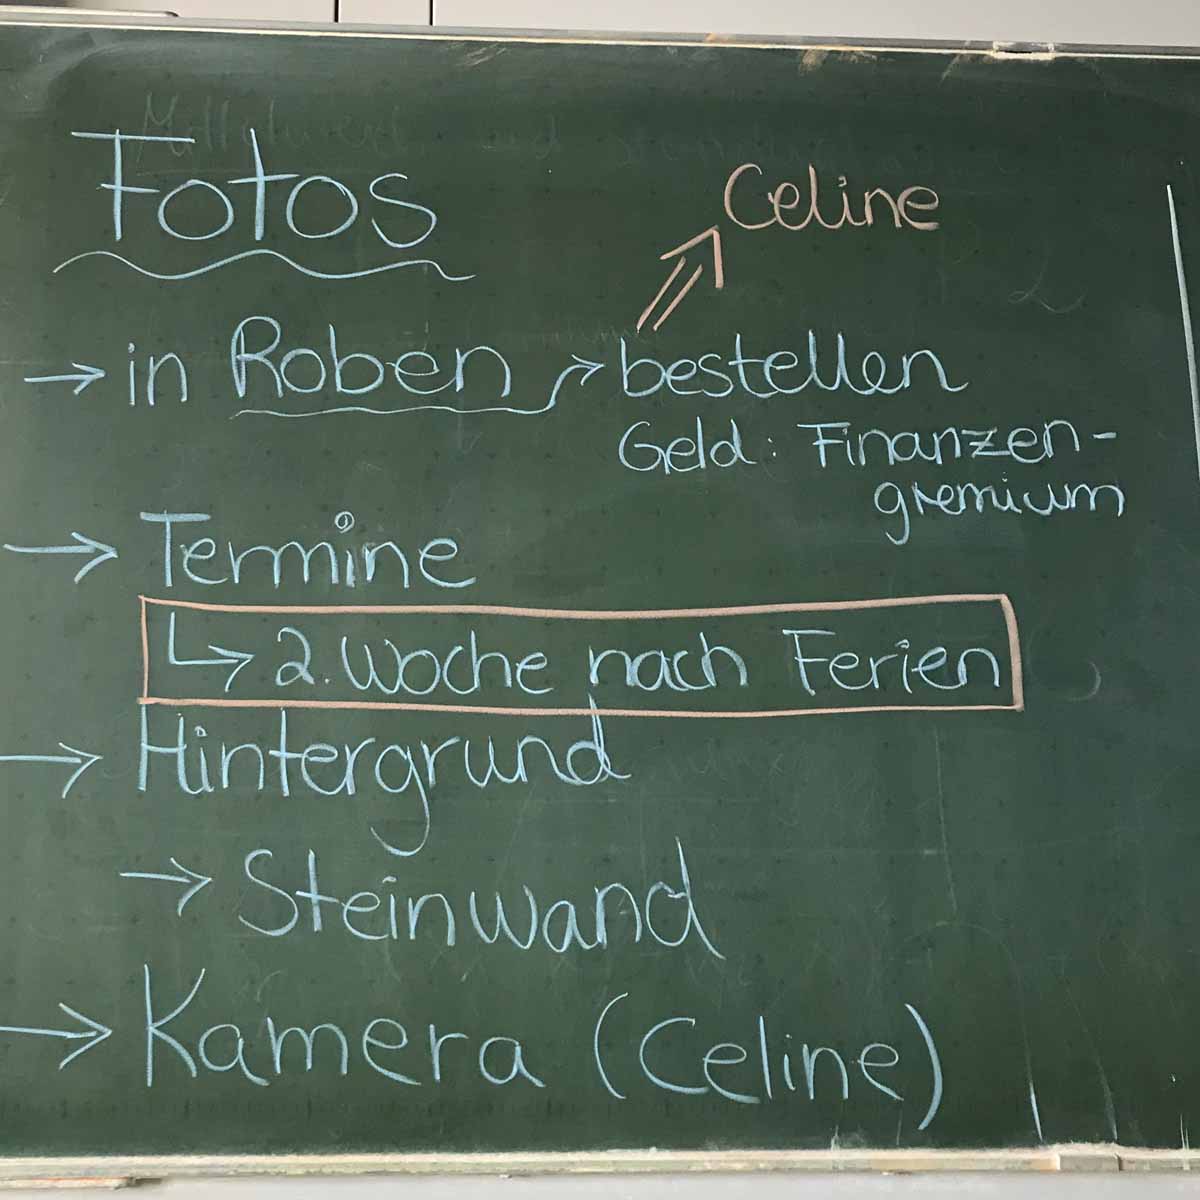 Fotos
Celine
→ in Roben → bestellen
Geld: Finanzen-
gremium
→ Termine
↳ 2. Woche nach Ferien
→ Hintergrund
→ Steinwand
→ Kamera (Celine)